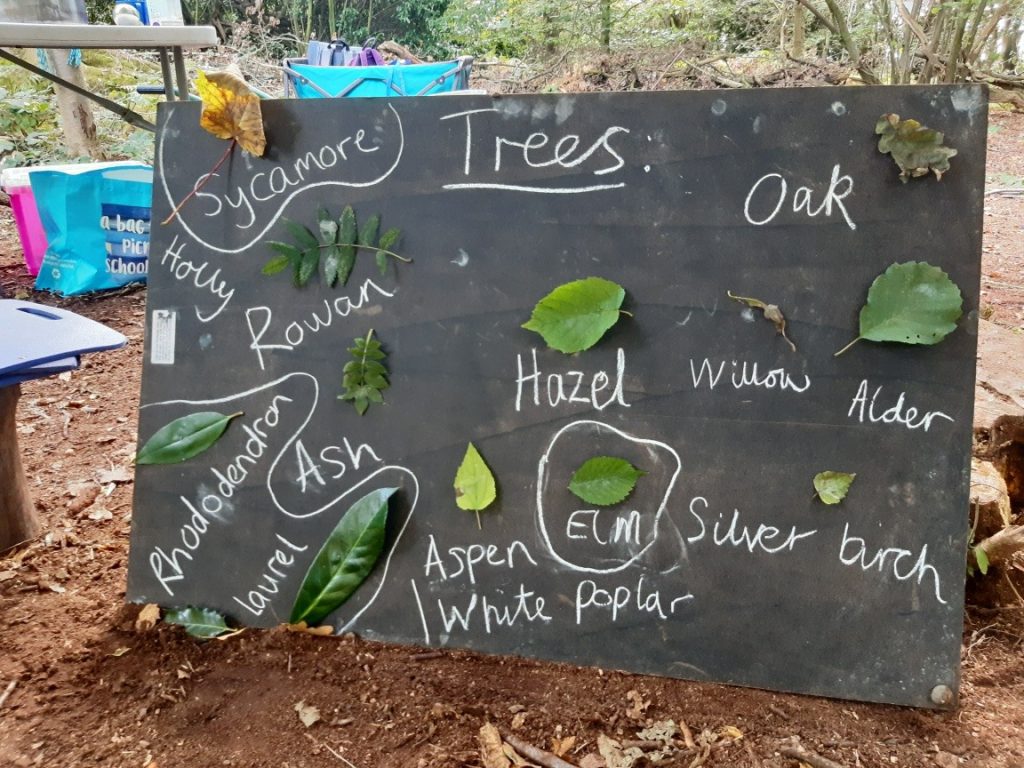 Trees:
Sycamore
Oak
Holly
Rowan
Hazel
Willow
Alder
Rhododendron
Ash
laurel
Aspen
White poplar
ELM
Silver birch
a bag
Picn
school